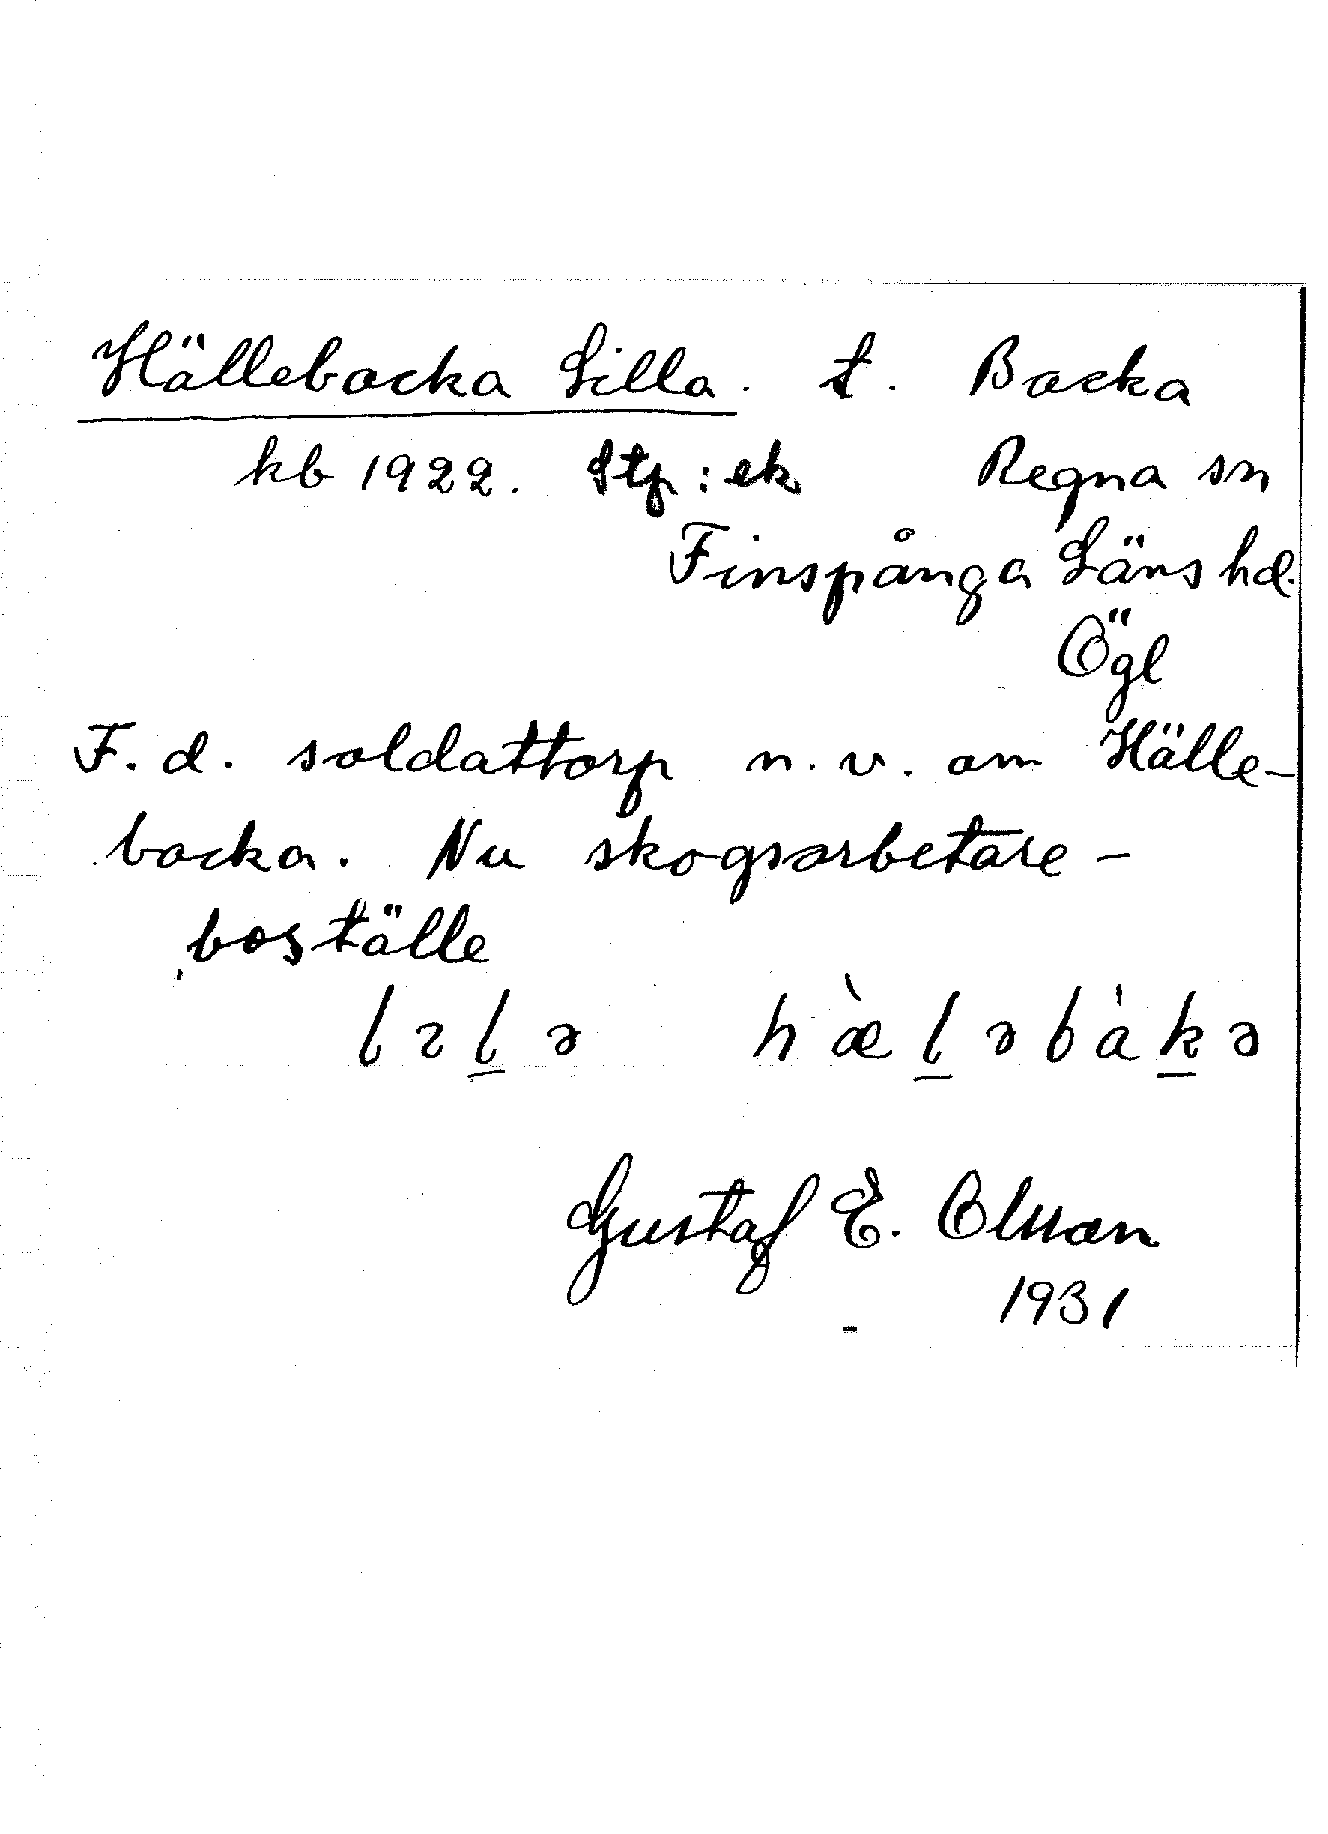 Hällebacka Lilla. t. Backa
kb 1922. Stp: ek Regna sn
Finspånga Läns hd.
Ögl
F. d. soldattorp n. v. om Hälle-
backa. Nu skogsarbetare-
boställe
lɿl̲ə hæ̀l̲əbàk̲ə
Gustaf E. Olsson
1931